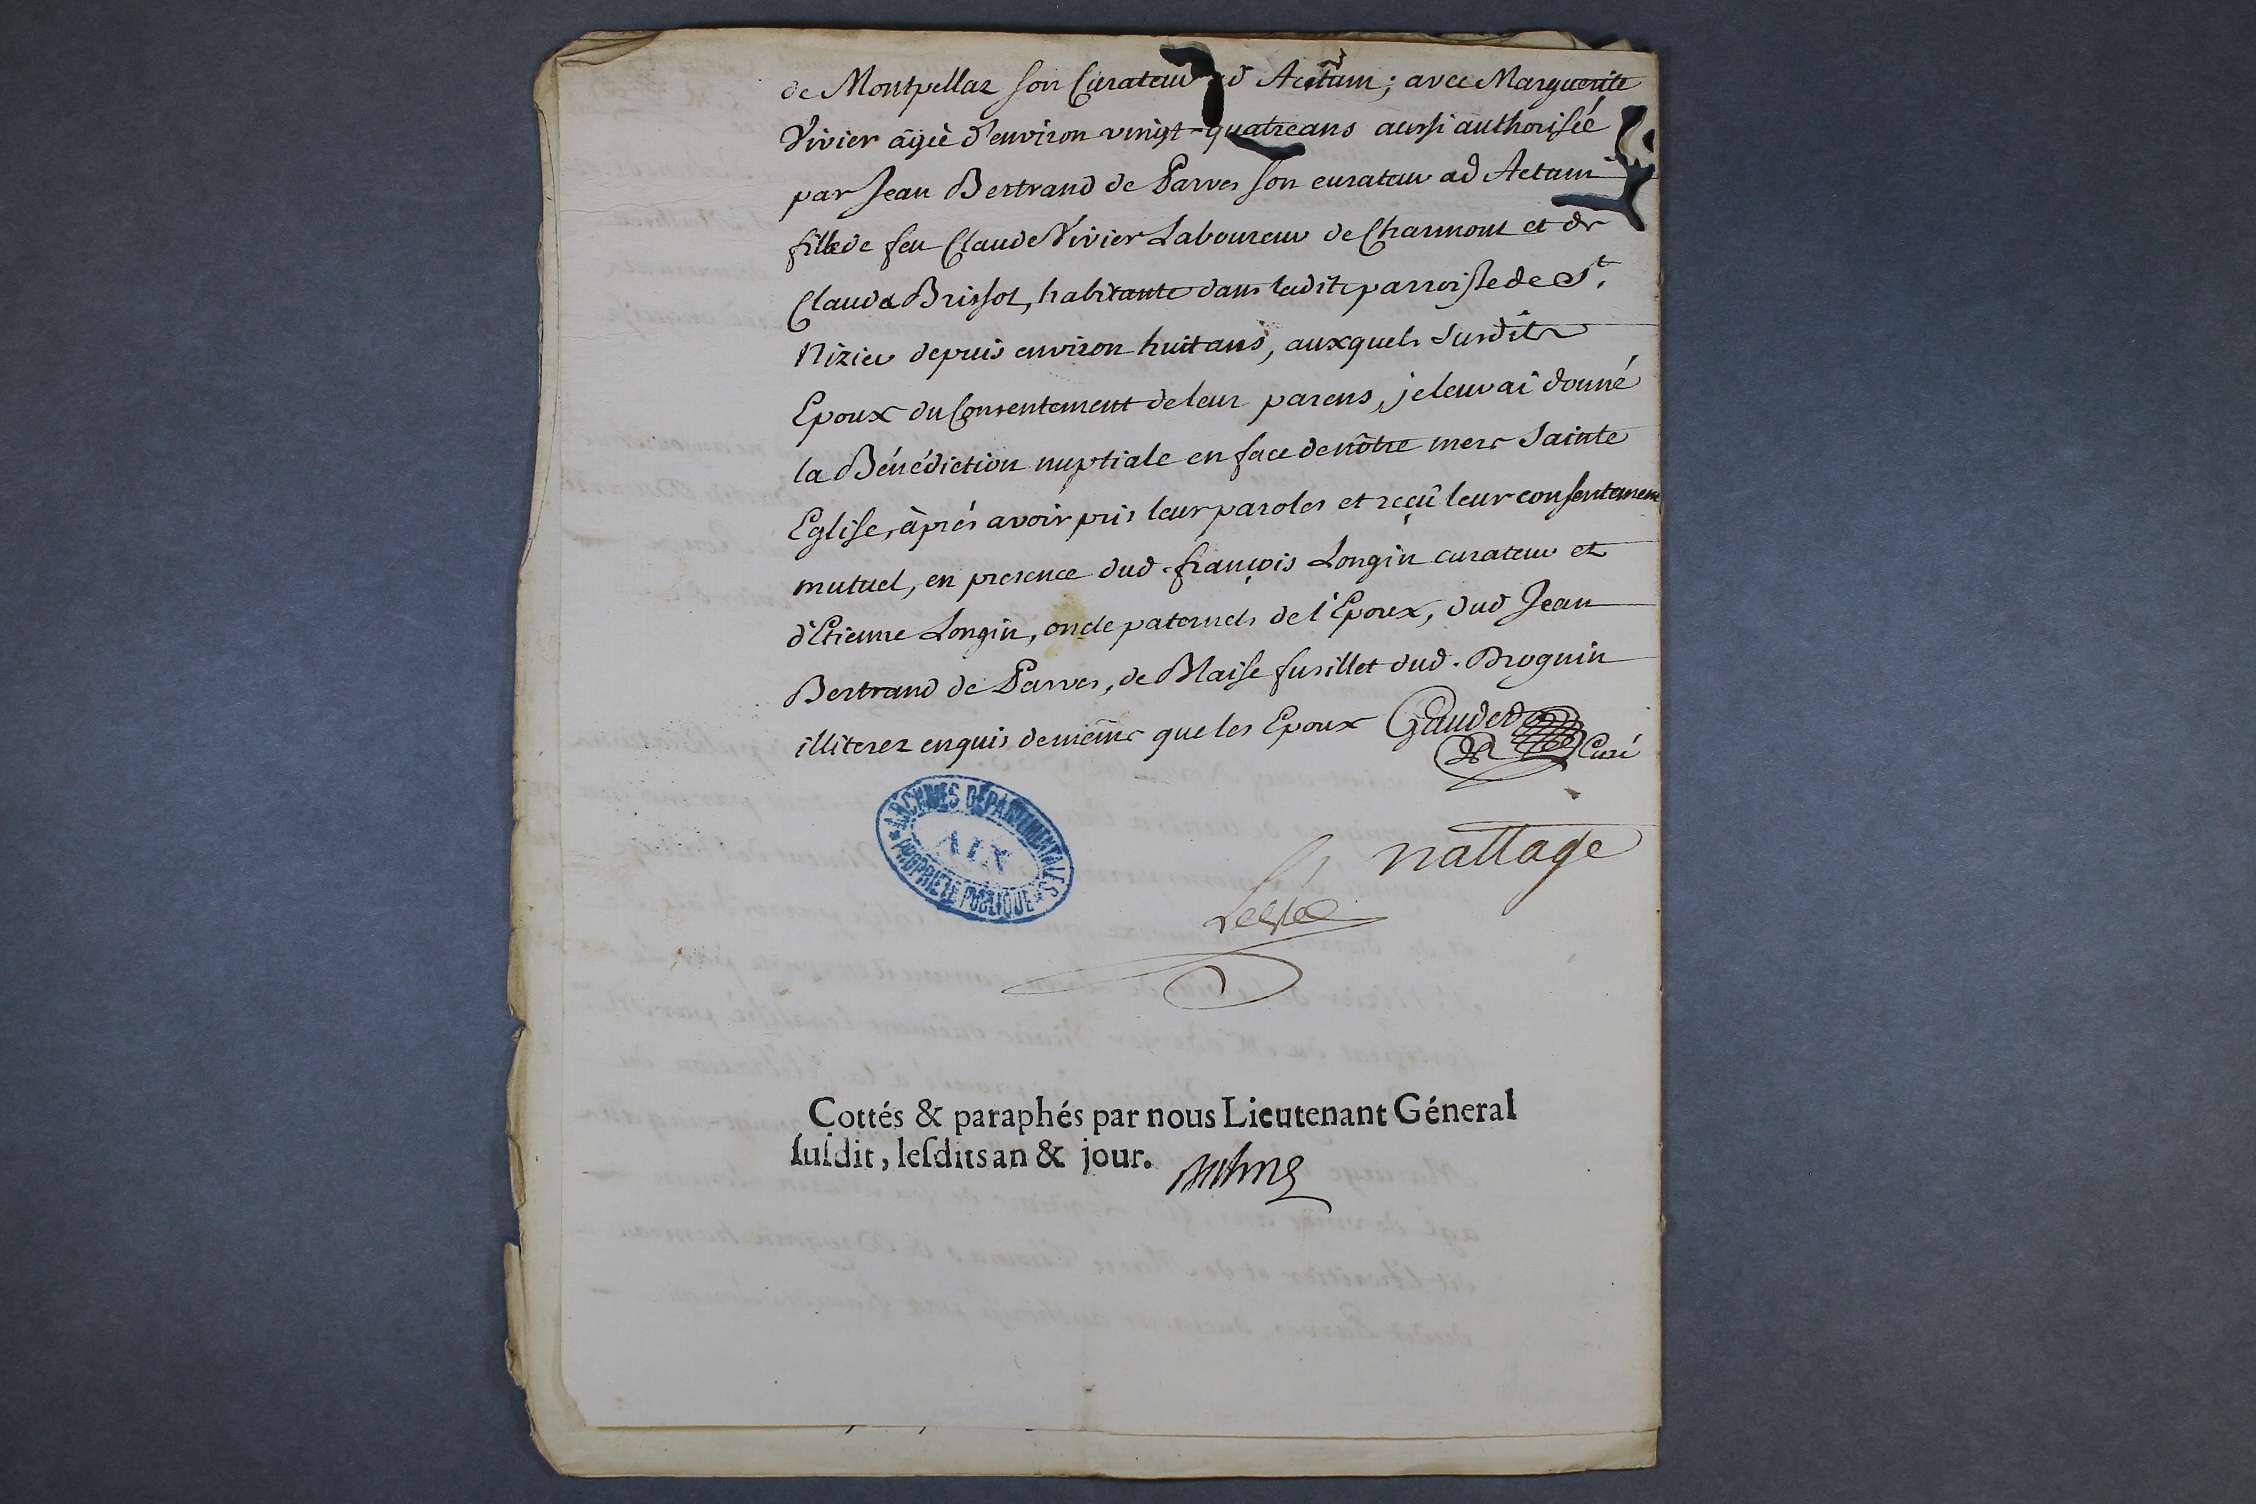 de Montpellaz son Curateur ad Actum; avec Marguerite
Vivier âgée d'environ vingt-quatre ans aussi authorisée
par Jean Bertrand de Parves son curateur ad Actum
fille de feu Claude Vivier Laboureur de Charmont et de
Claude Brissot, habitante dans ladite parroisse de St.
Nizier depuis environ huit ans, auxquels susdits
Epoux du Consentement de leur parens, je leur ai donné
la Bénédiction nuptiale en face de nôtre mere Sainte
Eglise, âprés avoir pris leur paroles et reçû leur consentement
mutuel, en presence dud. françois Longin curateur et
d'Etienne Longin, oncle paternels de l'Epoux, dud Jean
Bertrand de Parves, de Blaise fusillet dud. Brognin
illiterez enquis de même que les Epoux Gaudet
Curé
ARCHIVES DÉPARTEMENTALES
AIN
PROPRIÉTÉ PUBLIQUE
nattage
Cottés & paraphés par nous Lieutenant Géneral
susdit, lesdits an & jour.